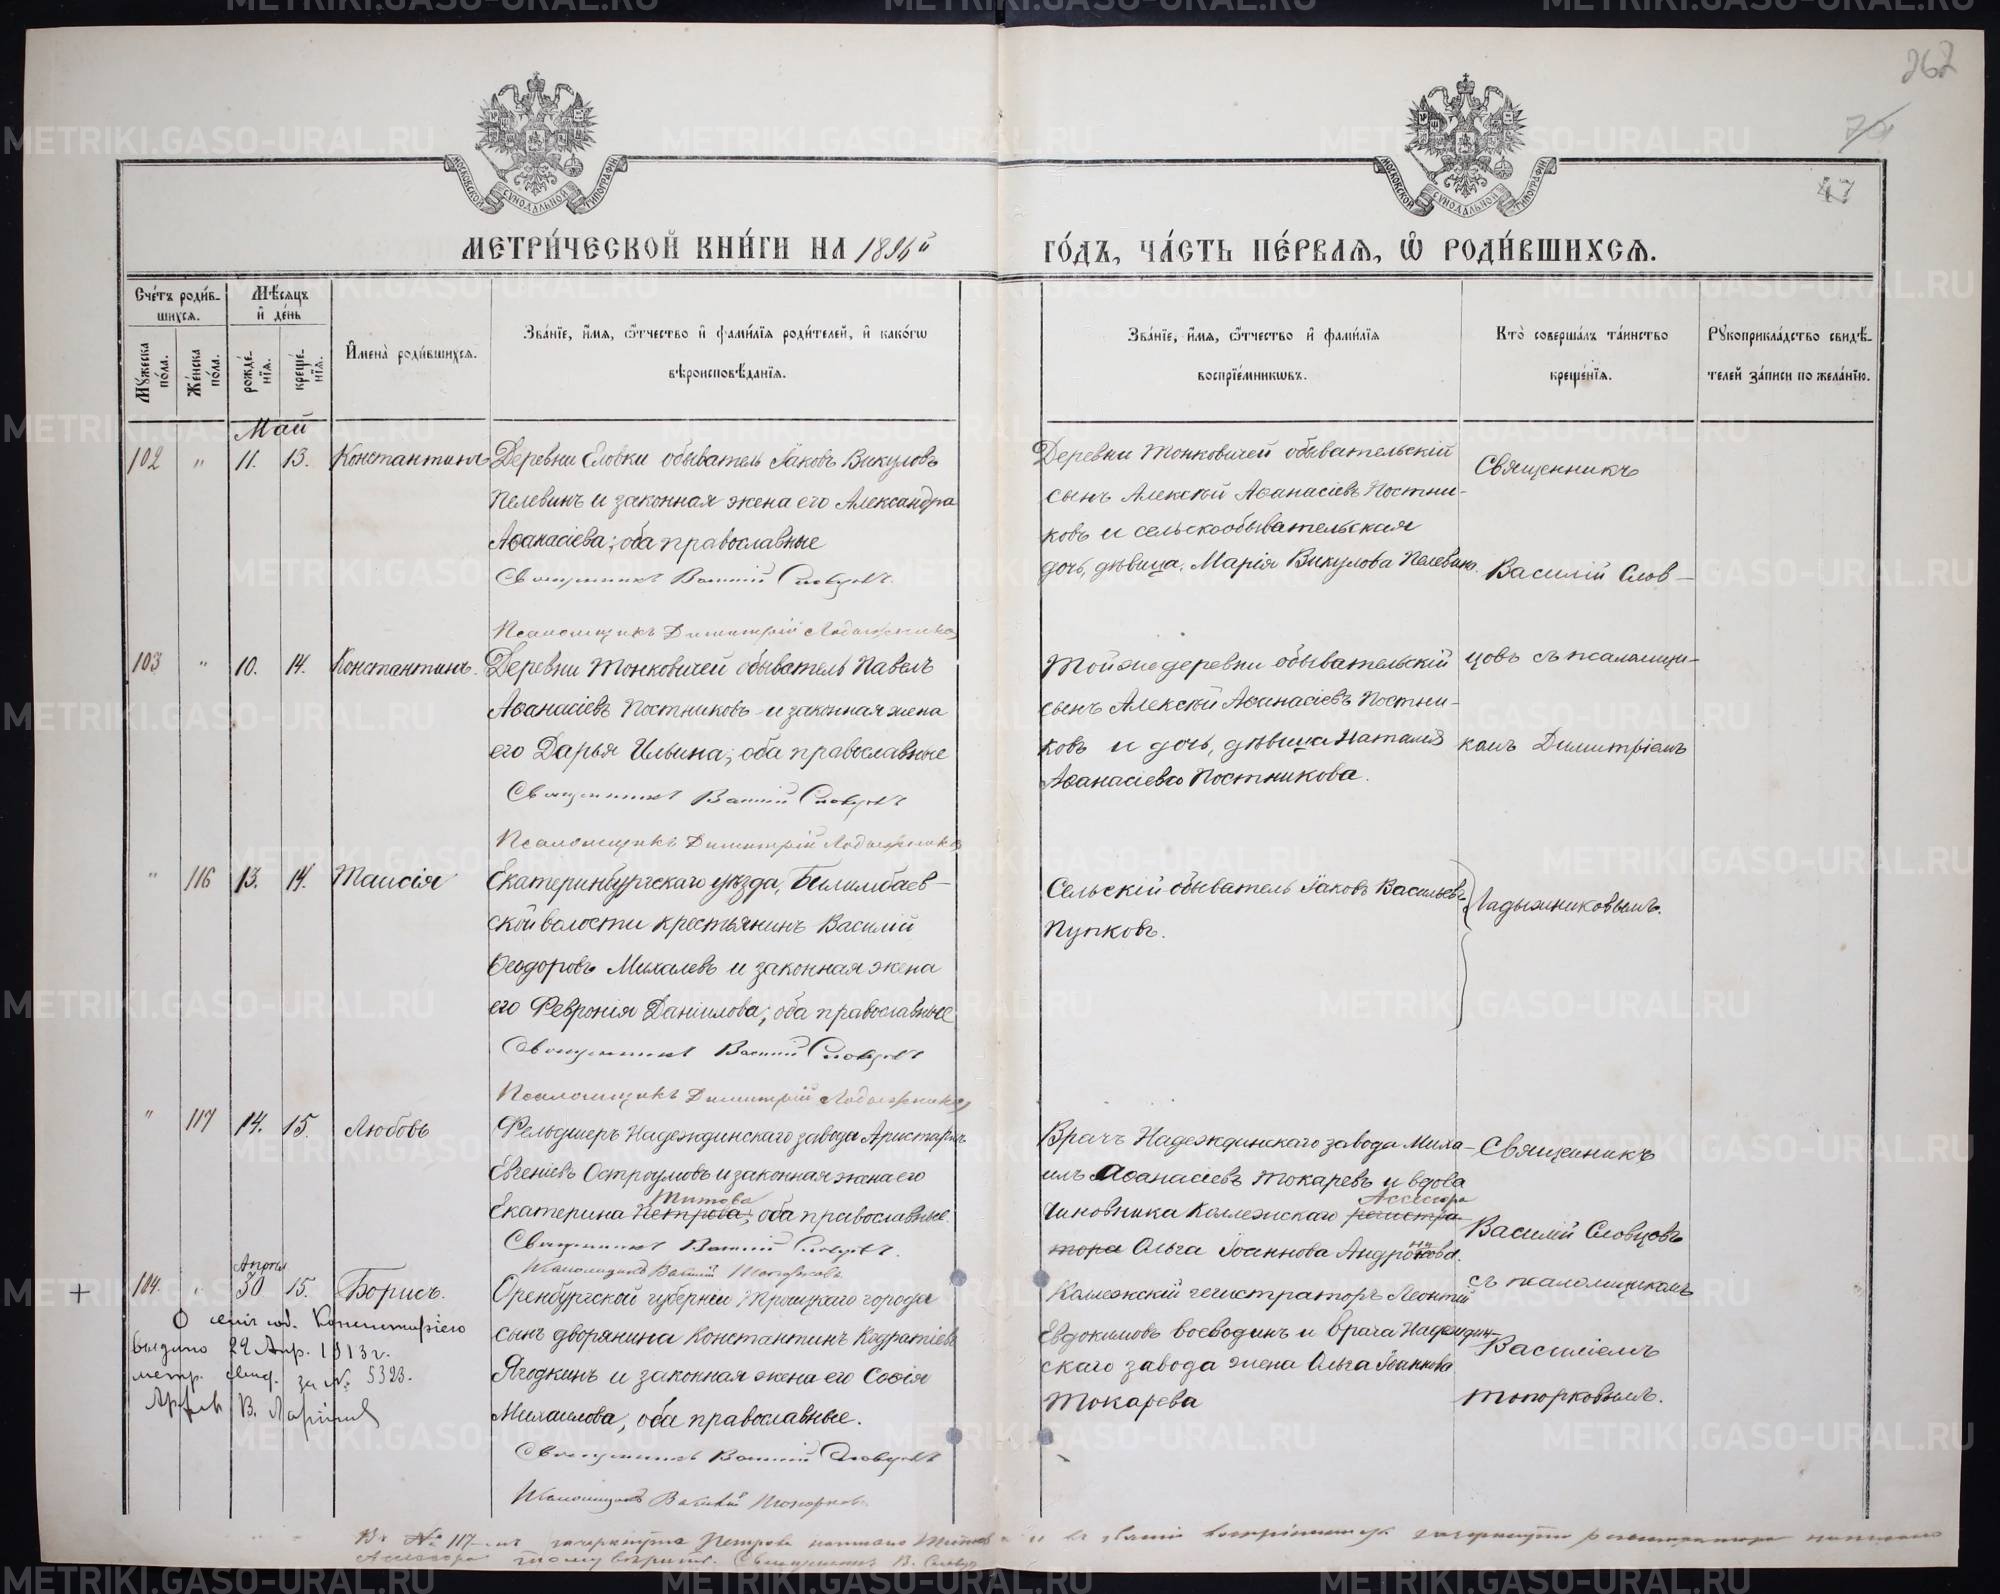 267
47
МОСКОВСКОЙ СѴНОДАЛЬНОЙ ТИПОГРАФІИ
МОСКОВСКОЙ СѴНОДАЛЬНОЙ ТИПОГРАФІИ
МЕТРИ́ЧЕСКОЙ КНИ́ГИ НА 1896й ГО́ДЪ, ЧА́СТЬ ПЕ́РВАѦ, Ѡ РОДИ́ВШИХСѦ.
Сче́тъ роди́в-
шихсѧ.
Мꙋжеска по́ла.
Же́нска по́ла.
Мѣ́сѧцъ
и҆ де́нь
рожде́-
нїѧ.
креще́-
нїѧ.
И҆мена̀ роди́вшихсѧ.
Зва́нїе, и҆́мѧ, ѻ҆́тчество и҆ фами́лїѧ роди́телей, и҆ како́гѡ
вѣроисповѣ́данїѧ.
Зва́нїе, и҆́мѧ, ѻ҆́тчество и҆ фами́лїѧ
воспрїе́мникѡвъ.
Кто̀ соверша́лъ та́инство
креще́нїѧ.
Рꙋкоприкла́дство свидѣ́-
телей за́писи по жела́нїю.
Май
102 " 11. 13. Константинъ
Деревни Еловки обыватель Іаковъ Викуловъ
Пелевинъ и законная жена его Александра
Аѳанасіева; оба православные
Священникъ Василій Словцовъ.
Псаломщикъ Димитрій Ладыжниковъ
Деревни Тонковичей обывательскій
сынъ Алексѣй Аѳанасіевъ Постни-
ковъ и сельскообывательская
дочь, дѣвица, Марія Викулова Пелевина.
Священникъ
Василій Слов-
103 " 10. 14. Константинъ.
Деревни Тонковичей обыватель Павелъ
Аѳанасіевъ Постниковъ и законная жена
его Дарья Ильина; оба православные
Священникъ Василій Словцовъ
Псаломщикъ Димитрій Ладыжниковъ
Тойже деревни обывательскій
сынъ Алексѣй Аѳанасіевъ Постни-
ковъ и дочь, дѣвица Наталія
Аѳанасіева Постникова.
цовъ съ псаломщи-
комъ Димитріемъ
" 116 13. 14. Таисія
Екатеринбургскаго уѣзда, Билимбаев-
ской волости крестьянинъ Василій
Ѳеодоровъ Михалевъ и законная жена
его Февронія Даніилова; оба православные
Священникъ Василій Словцовъ
Псаломщикъ Димитрій Ладыжниковъ
Сельскій обыватель Іаковъ Васильевъ
Пупковъ.
Ладыжниковымъ.
" 117 14. 15. Любовь
Фельдшеръ Надеждинскаго завода Аристархъ
Евгеніевъ Остроумовъ и законная жена его
Титова
Екатерина Петрова; оба православные.
Священникъ Василій Словцовъ.
Псаломщикъ Василій Топорковъ
Врачъ Надеждинскаго завода Миха-
илъ Аѳанасіевъ Токаревъ и вдова
Ассесора
чиновника Коллежскаго регистра-
тора Ольга Іоаннова Андроникова.
Священникъ
Василій Словцовъ
съ псаломщикомъ
Апрѣля
104. " 30 15. Борисъ.
Оренбургской губерніи Троицкаго города
сынъ дворянина Константинъ Кодратіевъ
Ягодкинъ и законная жена его Софія
Михаилова, оба православные.
Священникъ Василій Словцовъ
Псаломщикъ Василій Топорковъ
Коллежскій регистраторъ Леонтій
Евдокимовъ Воеводинъ и врача Надеждин-
скаго завода жена Ольга Іоаннова
Токарева
Василіемъ
Топорковымъ.
Консисторіею
выдано 22 Апр. 1913 г.
метр. свид. за № 5323.
Въ № 117-мъ зачеркнуто Петрова написано Титова и въ званіи воспріемницы зачеркнуто регистратора написано
Ассесора тому вѣрить. Священникъ В. Словцовъ
METRIKI.GASO-URAL.RU